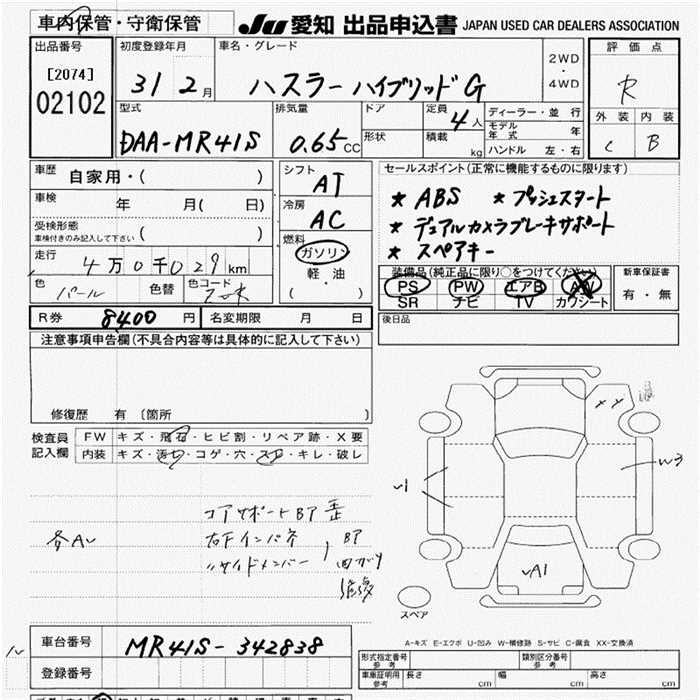 車内保管・守衛保管 JU 愛知 出品申込書 JAPAN USED CAR DEALERS ASSOCIATION
出品番号 初度登録年月 車名・グレード 2WD・4WD 評価点
[2074] 02102 31 2月 ハスラー ハイブリッドG R
型式 排気量 ドア 定員 ディーラー・並行 外装 内装
DAA-MR41S 0.65CC 形状 4人 積載 kg モデル年式 年 C B
ハンドル 左・右
車歴 自家用・( ) シフト AT セールスポイント(正常に機能するものに限ります)
車検 年 月( 日) 冷房 AC ★ ABS ★ プッシュスタート
受検形態 車検付きのみ記入して下さい ( ) 燃料 ★ デュアルカメラブレーキサポート
走行 4万0千029km ガソリン ★ スペアキー
軽・油 ( )
色 パール 色替 色コード 装備品(純正品に限り○をつけてください) 新車保証書
PS PW エアB AW 有・無
SR ナビ TV カワシート
R券 8400円 名変期限 月 日 後日品
注意事項申告欄(不具合内容等は具体的に記入して下さい)
修復歴 有 〔箇所 〕
検査員記入欄 FW キズ・飛石・ヒビ割・リペア跡・X要
内装 キズ・汚れ・コゲ・穴・スレ・キレ・破レ
コアサポートBP
各AU 右F インパネ BP
〃サイドメンバー 曲がり
修復
W3
A1
スペア
車台番号 MR41S-342838
A-キズ E-エクボ U-凹み W-補修跡 S-サビ C-腐食 XX-交換済
登録番号
形式指定番号 参考 類別区分番号 参考
車庫証明用 参考 長さ cm 幅 cm 高さ cm